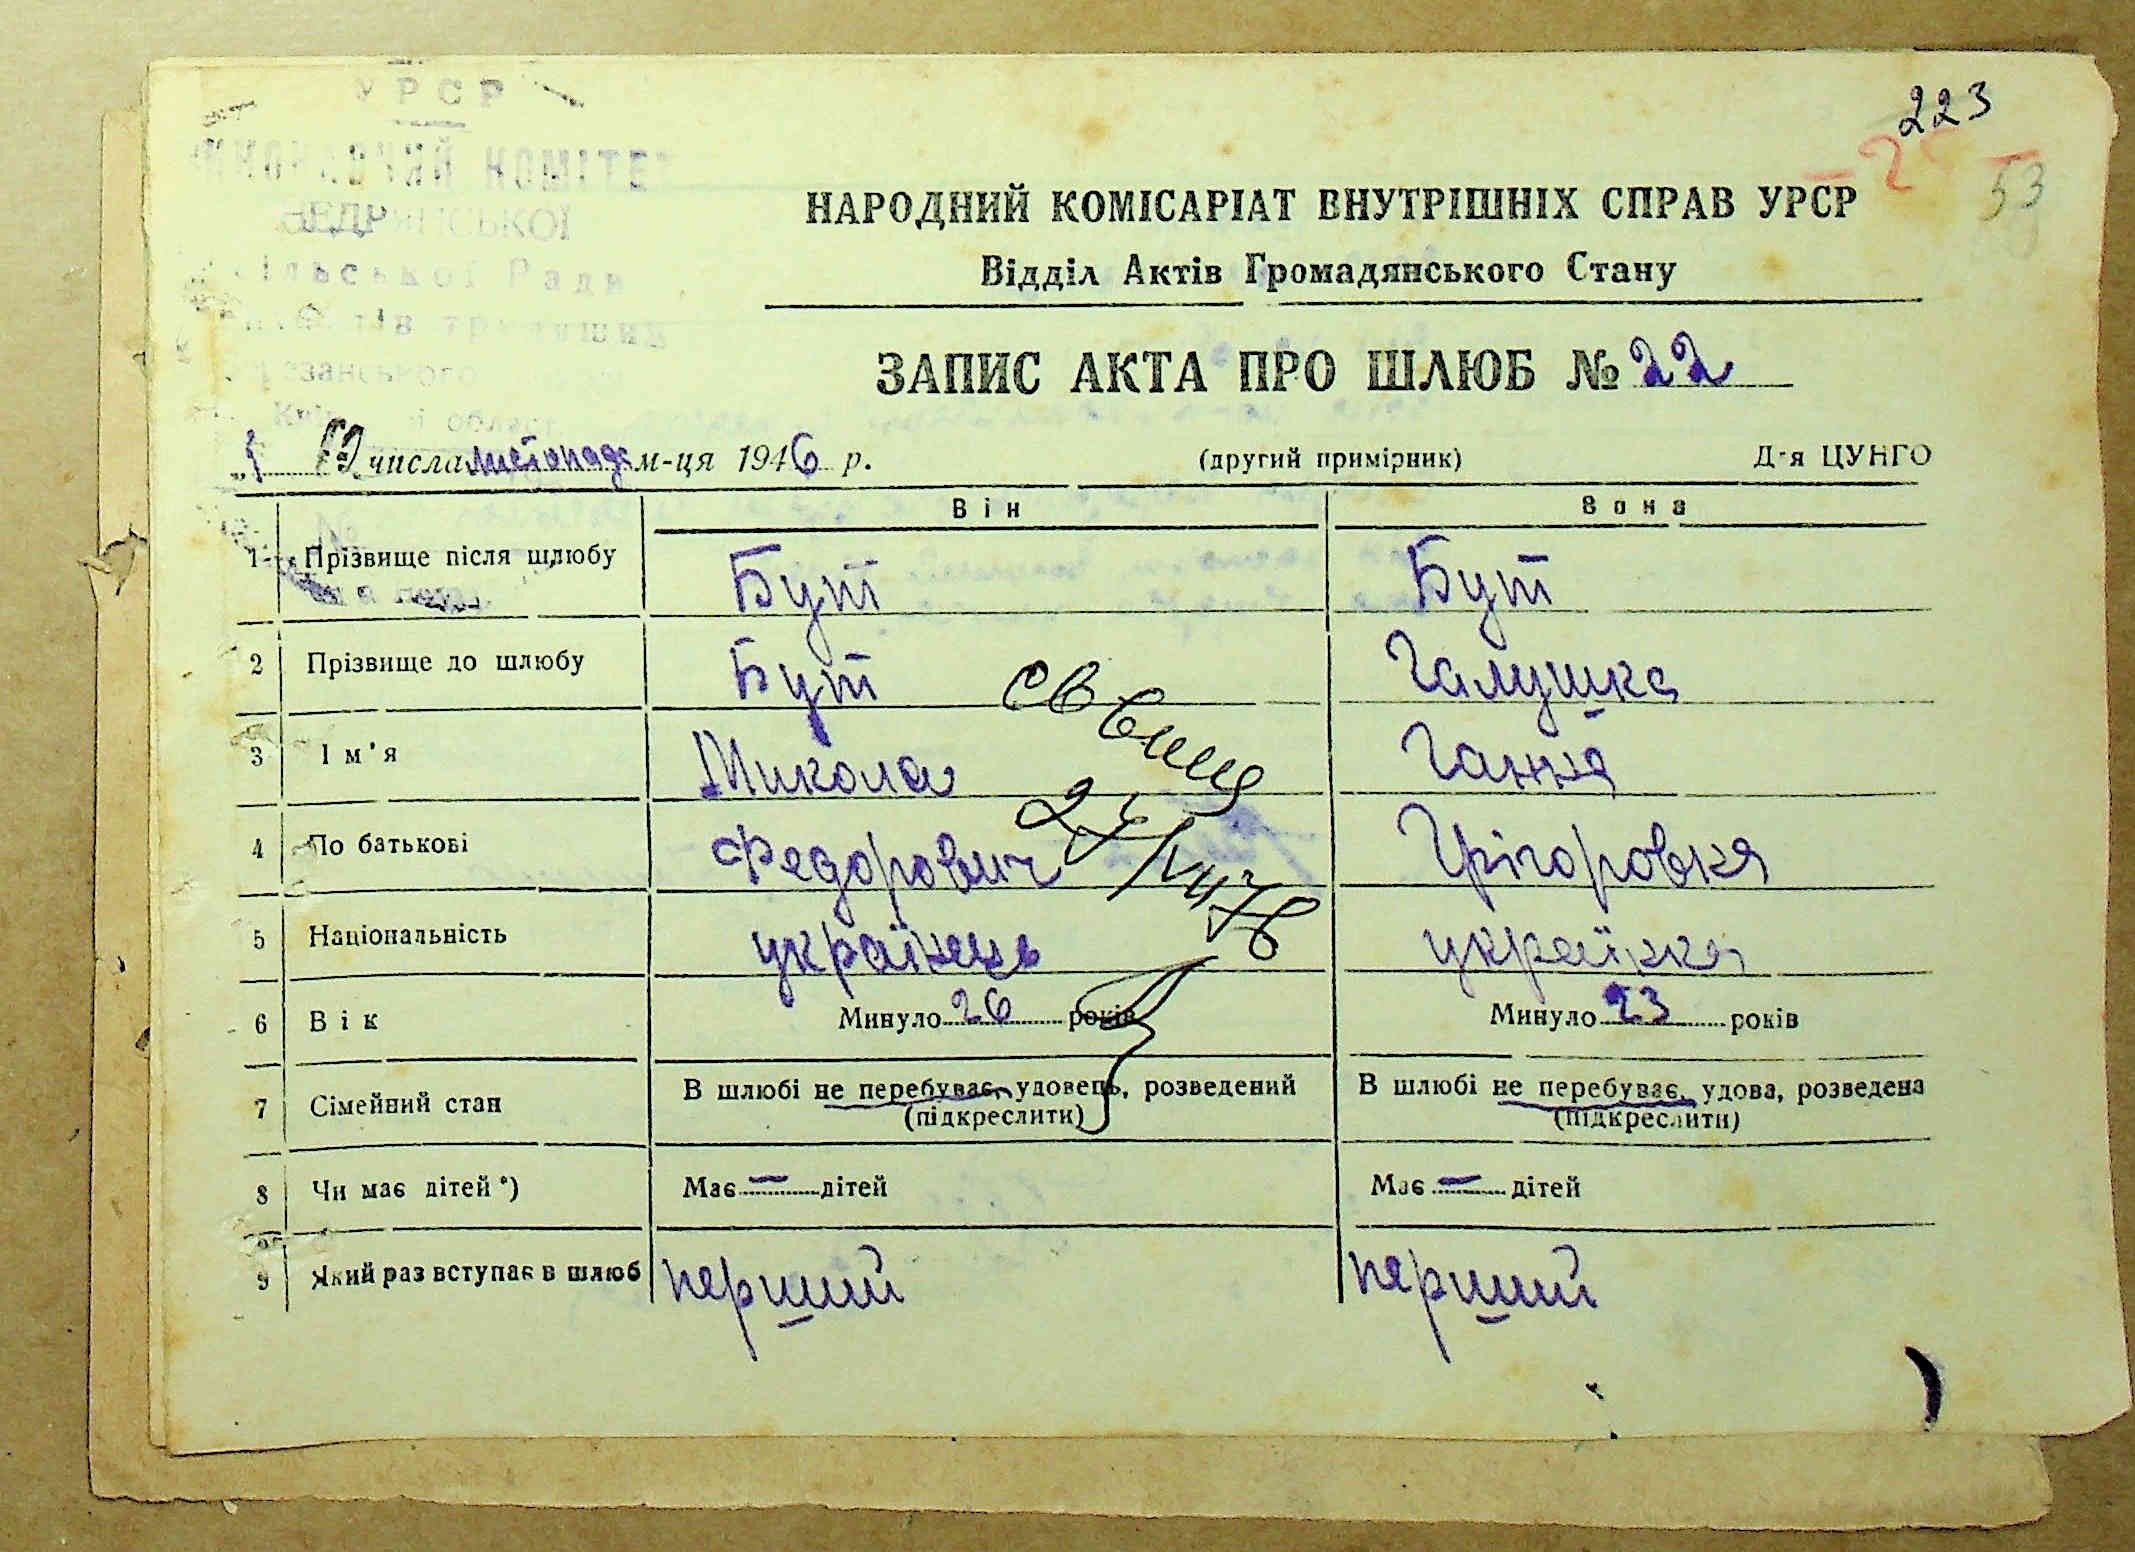 УРСР
223
53
НАРОДНИЙ КОМІСАРІАТ ВНУТРІШНІХ СПРАВ УРСР
Відділ Актів Громадянського Стану
ЗАПИС АКТА ПРО ШЛЮБ № 22
числа листопада м-ця 1946 р. (другий примірник) Д-я ЦУНГО
Він Вона
1 Прізвище після шлюбу Бут Бут
2 Прізвище до шлюбу Бут Галушка
3 Ім'я Микола Ганна
4 По батькові Федорович Грігоровня
5 Національність українець українка
6 Вік Минуло 26 років Минуло 23 років
7 Сімейний стан В шлюбі не перебуває, удовець, розведений В шлюбі не перебуває, удова, розведена
(підкреслити) (підкреслити)
8 Чи має дітей *) Має — дітей Має — дітей
9 Який раз вступає в шлюб перший перший